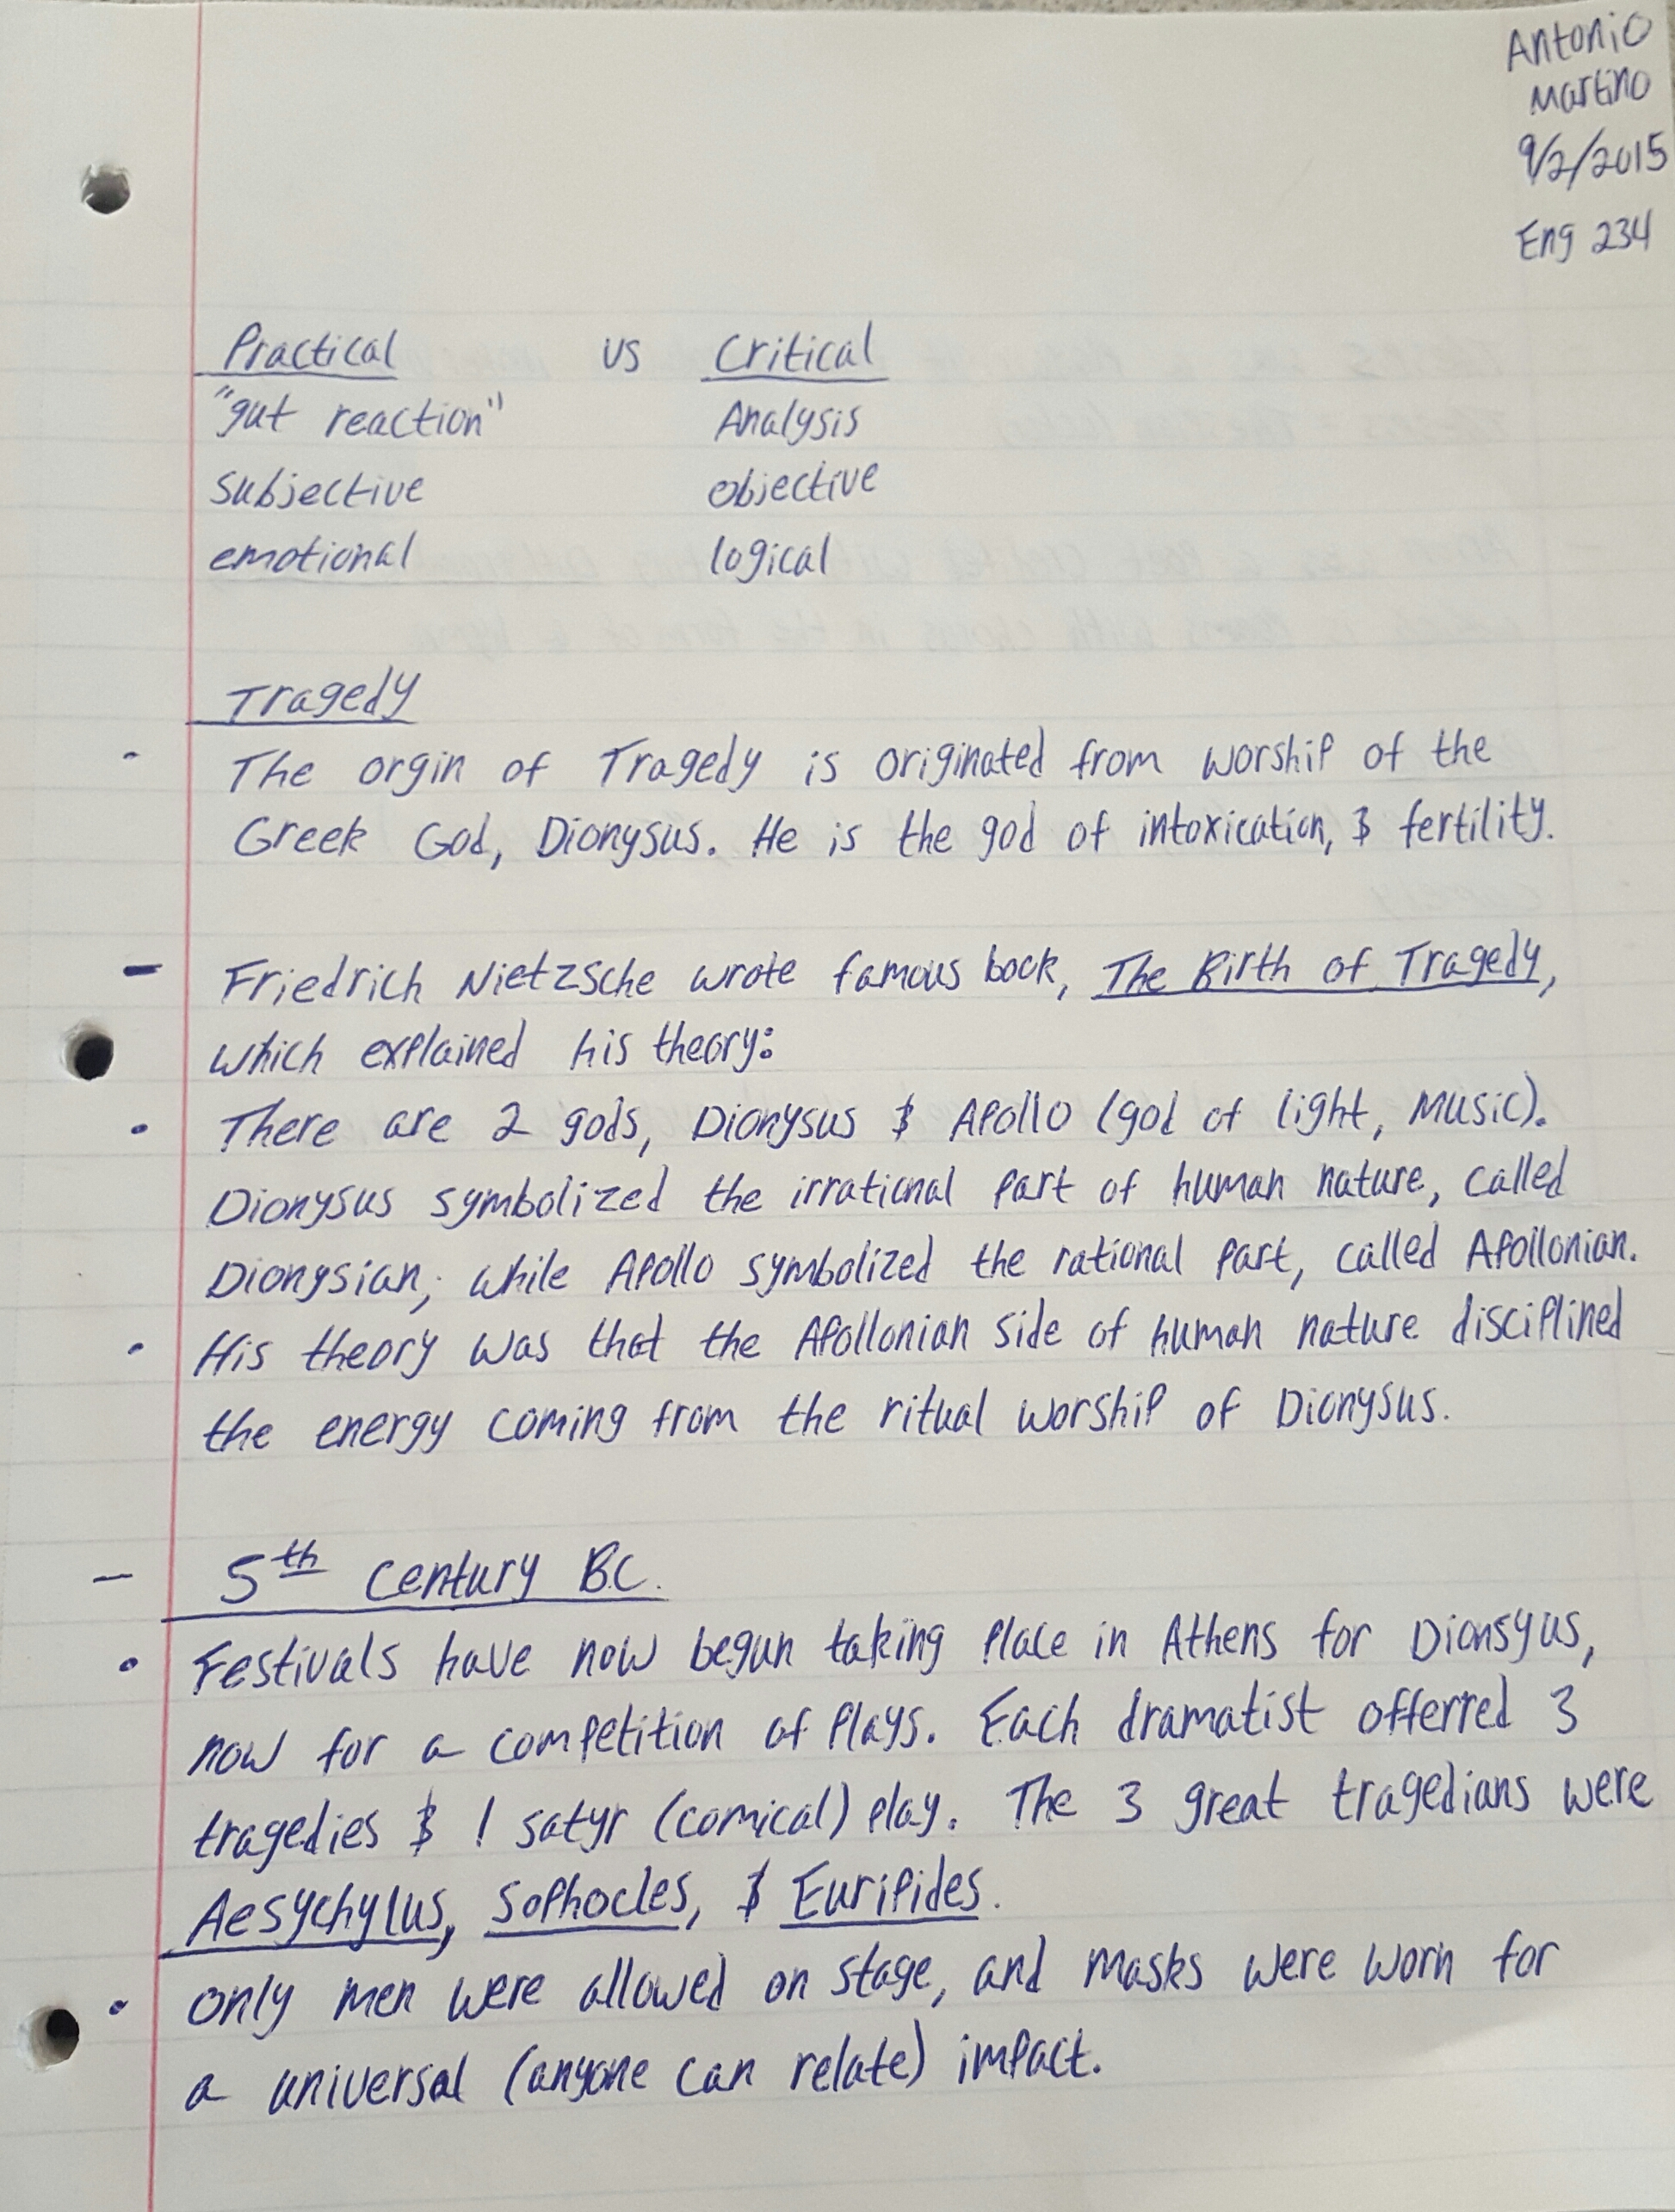 Antonio
Martino
9/2/2015
Eng 234
Practical vs Critical
"gut reaction" Analysis
subjective objective
emotional logical
Tragedy
- The orgin of Tragedy is originated from worship of the
Greek God, Dionysus. He is the god of intoxication, & fertility.
- Friedrich Nietzsche wrote famous book, The Birth of Tragedy,
which explained his theory:
• There are 2 gods, Dionysus & Apollo (god of light, Music).
Dionysus symbolized the irrational part of human nature, called
Dionysian, while Apollo symbolized the rational part, called Apollonian.
• His theory was that the Apollonian side of human nature disciplined
the energy coming from the ritual worship of Dionysus.
- 5th century B.C.
• Festivals have now begun taking place in Athens for Dionsyus,
now for a competition of plays. Each dramatist offerred 3
tragedies & 1 satyr (comical) play. The 3 great tragedians were
Aesychylus, Sophocles, & Euripides.
• only men were allowed on stage, and masks were worn for
a universal (anyone can relate) impact.